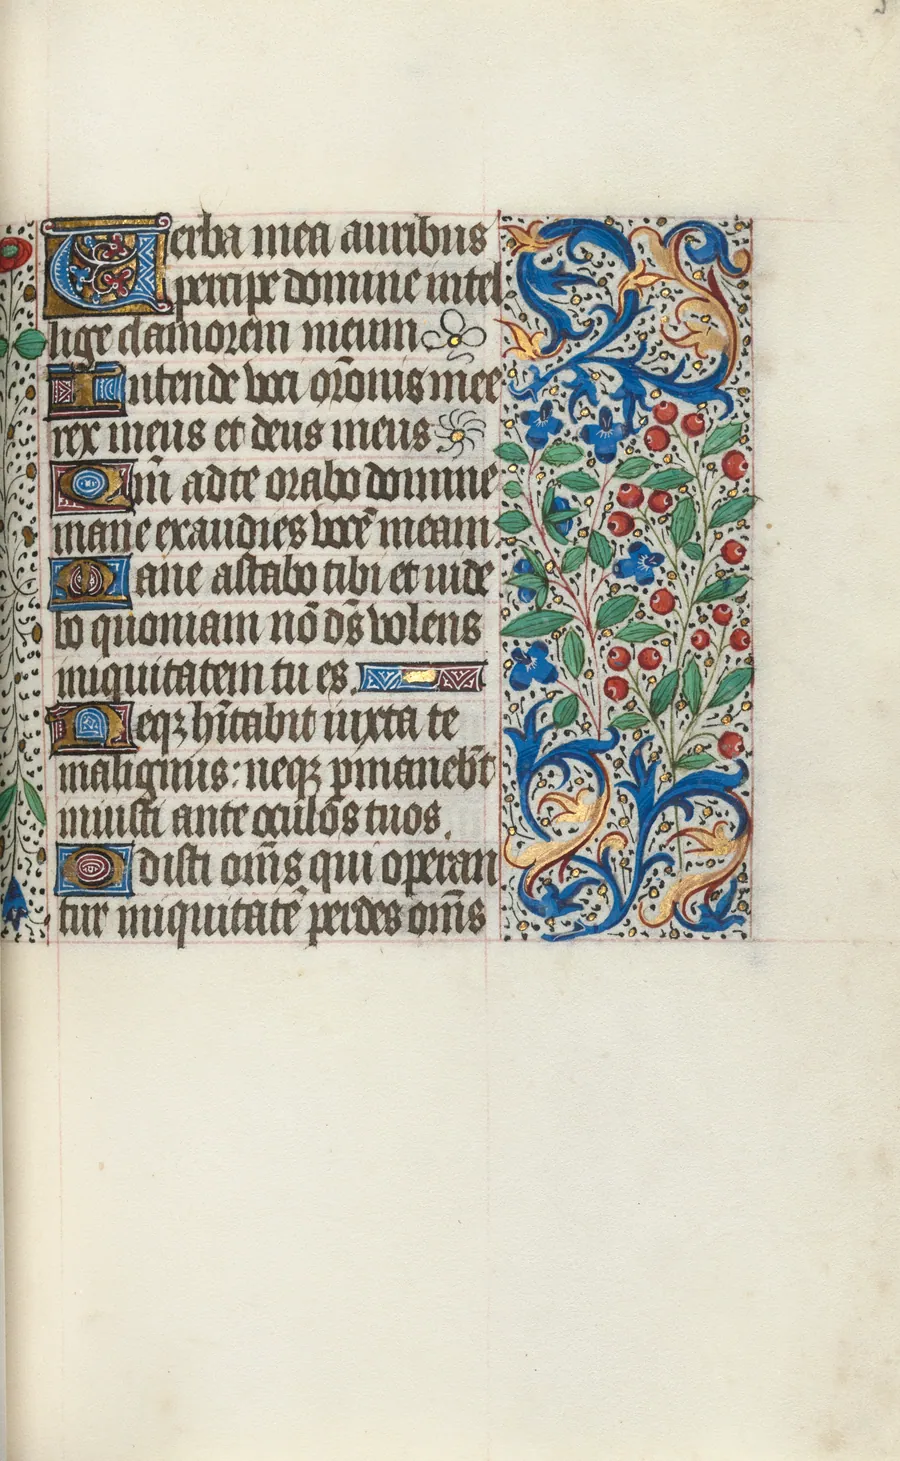 Verba mea auribus
percipe domine intel
lige clamorem meum
Intende voci or̄onis mee
rex meus et deus meus
Qm̄ ad te orabo domine
mane exaudies vocē meam
Mane astabo tibi et uide
bo quoniam nō ds̄ volens
iniquitatem tu es
Neqꝫ hītabit iuxta te
malignus: neqꝫ pmanebūt
iniusti ante oculos tuos.
Odisti om̄s qui operan
tur iniquitatē perdes om̄s